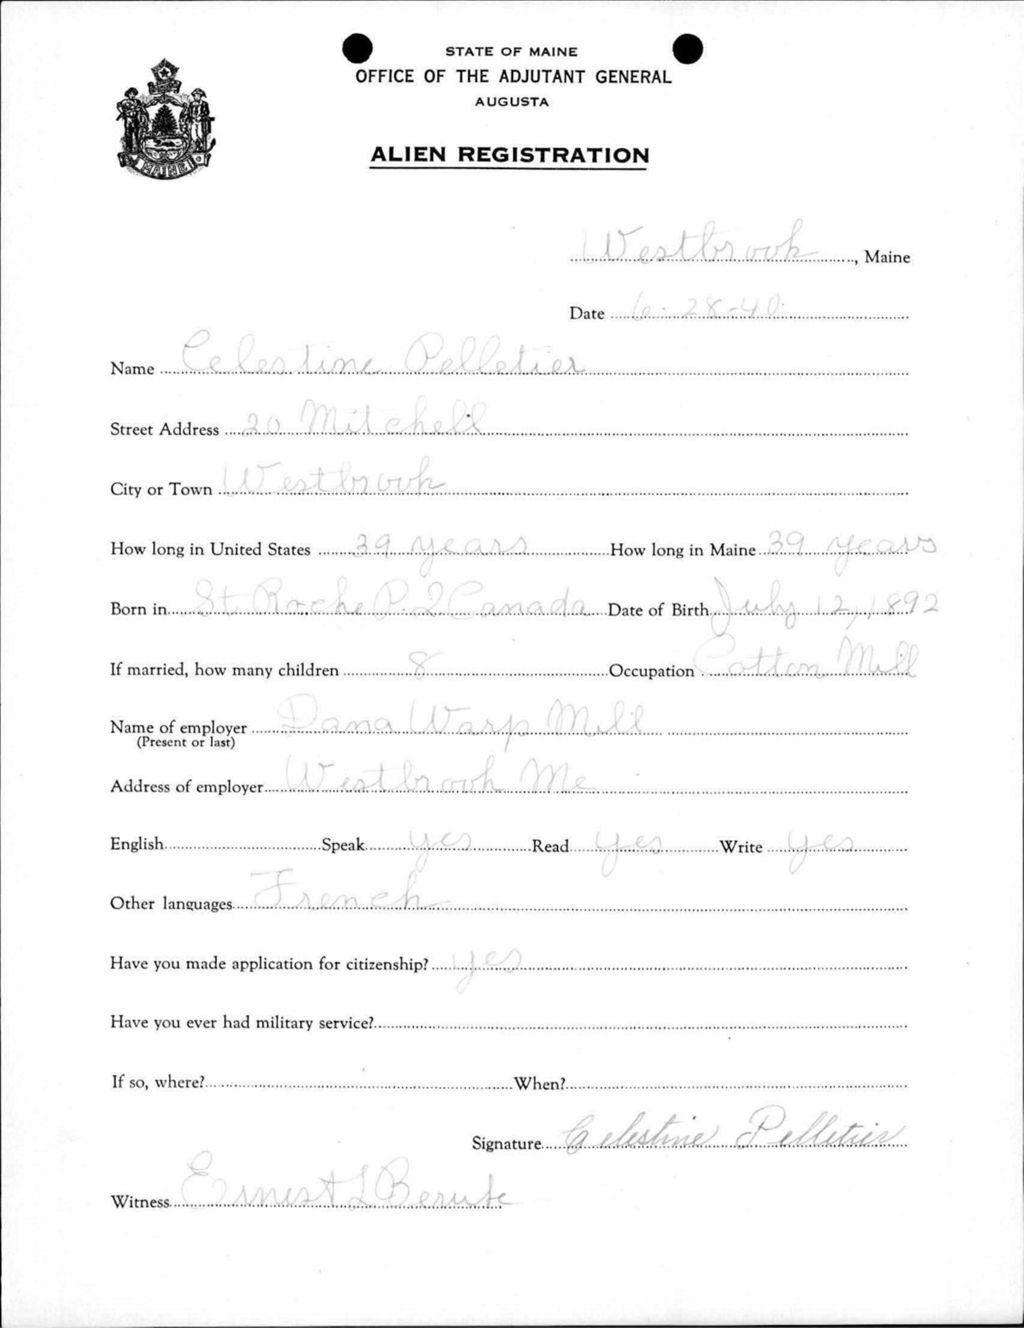 STATE OF MAINE
OFFICE OF THE ADJUTANT GENERAL
AUGUSTA
ALIEN REGISTRATION
MAINE
Westbrook, Maine
Date 6-28-40
Name Celestine Pelletier
Street Address 20 Mitchell
City or Town Westbrook
How long in United States 39 years How long in Maine 39 years
Born in St Roche P.Q Canada Date of Birth July 12, 1892
If married, how many children 8 Occupation Cotton Mill
Name of employer Dana Warp Mill
(Present or last)
Address of employer Westbrook Me
English Speak yes Read yes Write yes
Other languages French
Have you made application for citizenship? yes
Have you ever had military service?
If so, where? When?
Signature Celestine Pelletier
Witness Ernest L